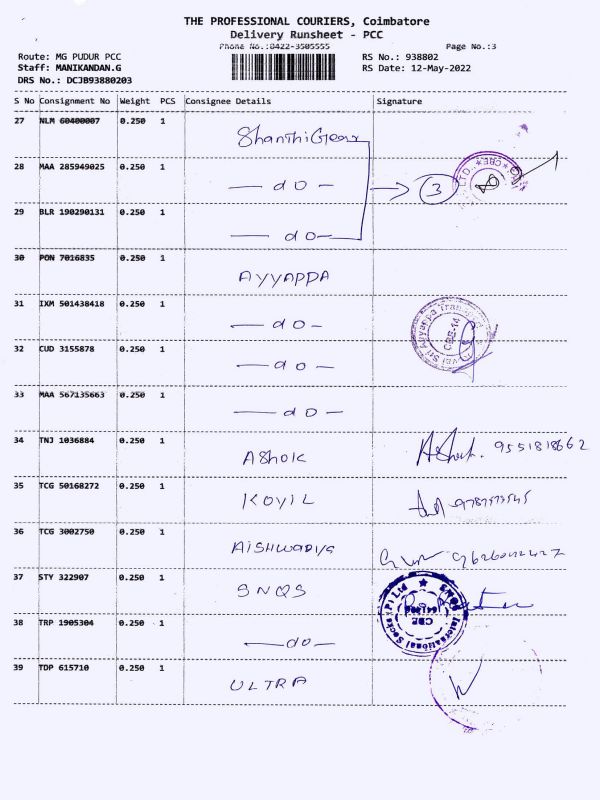 THE PROFESSIONAL COURIERS, Coimbatore
Delivery Runsheet - PCC
Phone No.:0422-3505555 Page No.:3
Route: MG PUDUR PCC RS No.: 938802
Staff: MANIKANDAN.G RS Date: 12-May-2022
DRS No.: DCJB93880203
S No Consignment No Weight PCS Consignee Details Signature
27 NLM 60400007 0.250 1 Shanthi Gears
28 MAA 285949025 0.250 1 — do — 3
29 BLR 190290131 0.250 1 — do —
30 PON 7016835 0.250 1 AYYAPPA
31 IXM 501438418 0.250 1 — do —
32 CUD 3155878 0.250 1 — do —
33 MAA 567135663 0.250 1 — do —
34 TNJ 1036884 0.250 1 AShok Ashok. 9551818662
35 TCG 50168272 0.250 1 KOYIL
36 TCG 3002750 0.250 1 AISHWARIYA
37 STY 322907 0.250 1 SNQS
38 TRP 1905304 0.250 1 — do —
39 TDP 615710 0.250 1 ULTRA
LTD. * CBE *
Sri Ayyappa Transport
CBE-14
SNQS International Socks (P) Ltd
CBE